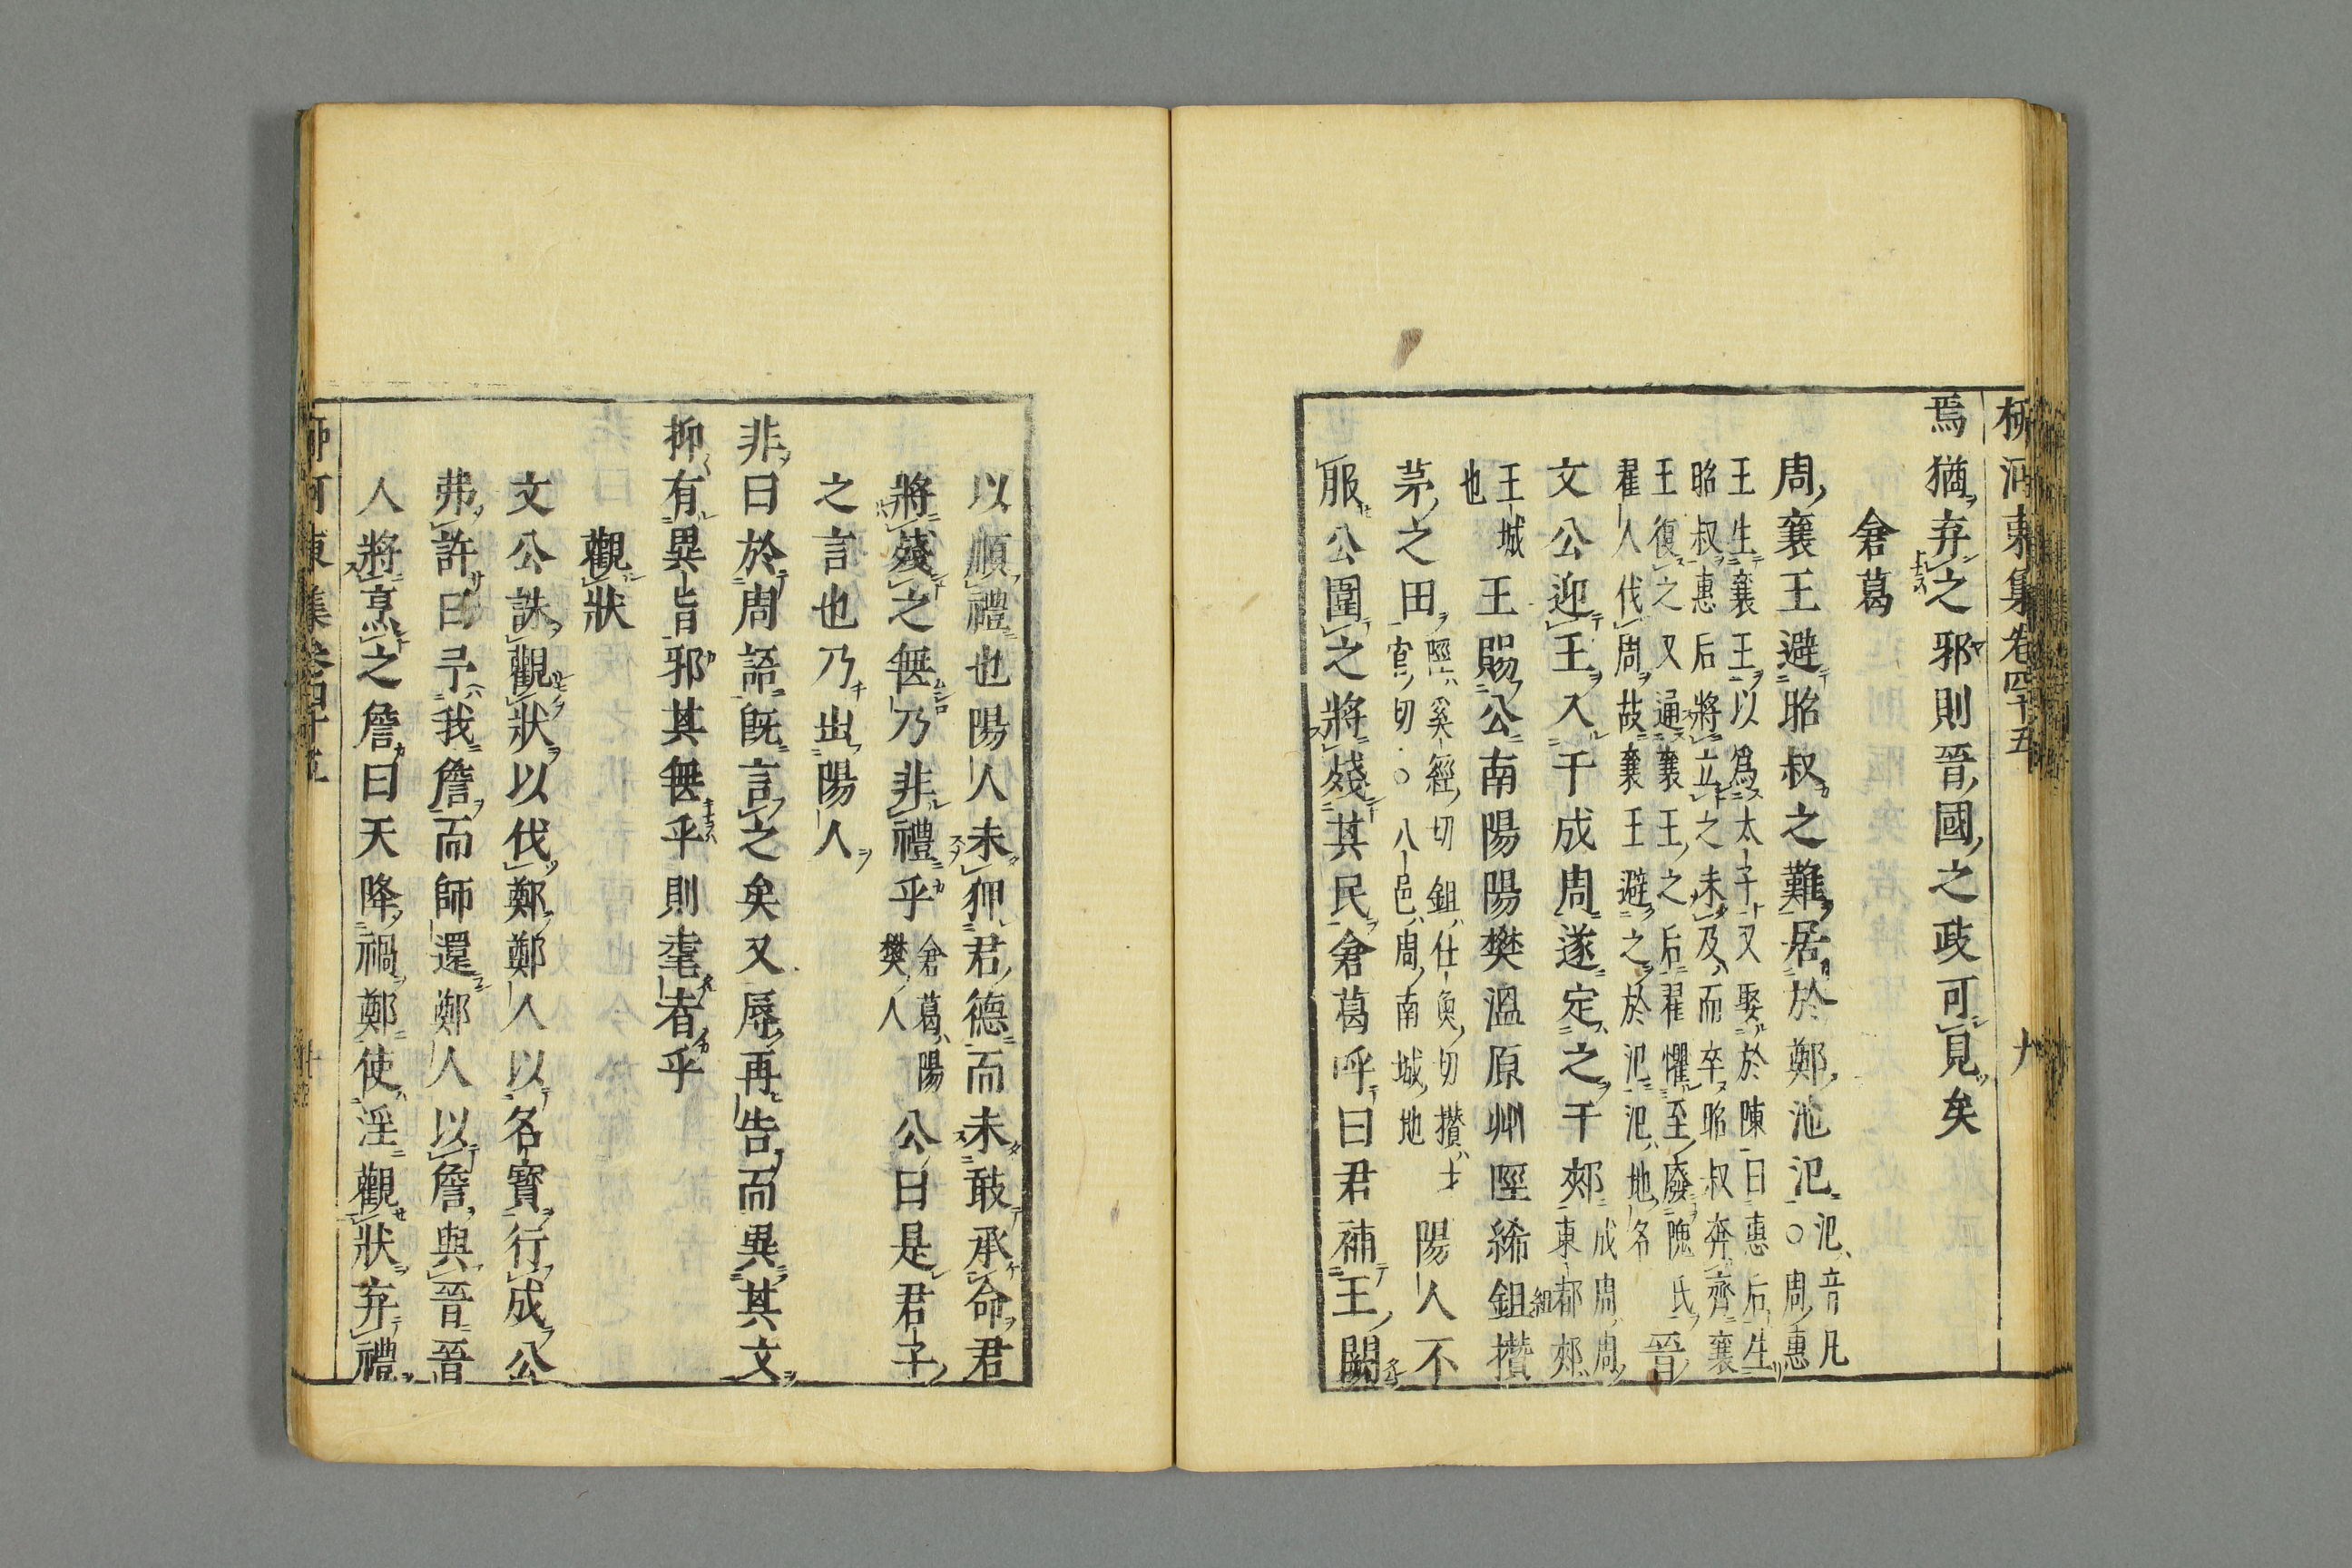 柳河東集卷四十五
九
焉猶弃之邪則晉國之政可見矣
倉葛
周襄王避昭叔之難居於鄭池氾氾音凡○周惠
王生襄王以爲太子又娶於陳曰惠后生
昭叔惠后將立之未及而卒昭叔奔齊襄
王復之又通襄王之后翟懼至廢隗氏
翟人伐周故襄王避之於氾氾地名晉
文公迎王入于成周遂定之于郟成周周東都郟
王城也王賜公南陽陽樊溫原州陘絺鉏攢
組
茅之田陘奚經切鉏仕魚切攢才官切○八邑周南城地陽人不
服公圍之將殘其民倉葛呼曰君補王闕
以順禮也陽人未狎君德而未敢承命君
將殘之無乃非禮乎倉葛陽樊人公曰是君子
之言也乃出陽人
非曰於周語既言之矣又辱再告而異其文
抑有異旨邪其無乎則耄者乎
觀狀
文公誅觀狀以伐鄭鄭人以名寶行成公
弗許曰予我詹而師還鄭人以詹與晉晉
人將烹之詹曰天降禍鄭使淫觀狀弃禮
柳河東集卷四十五